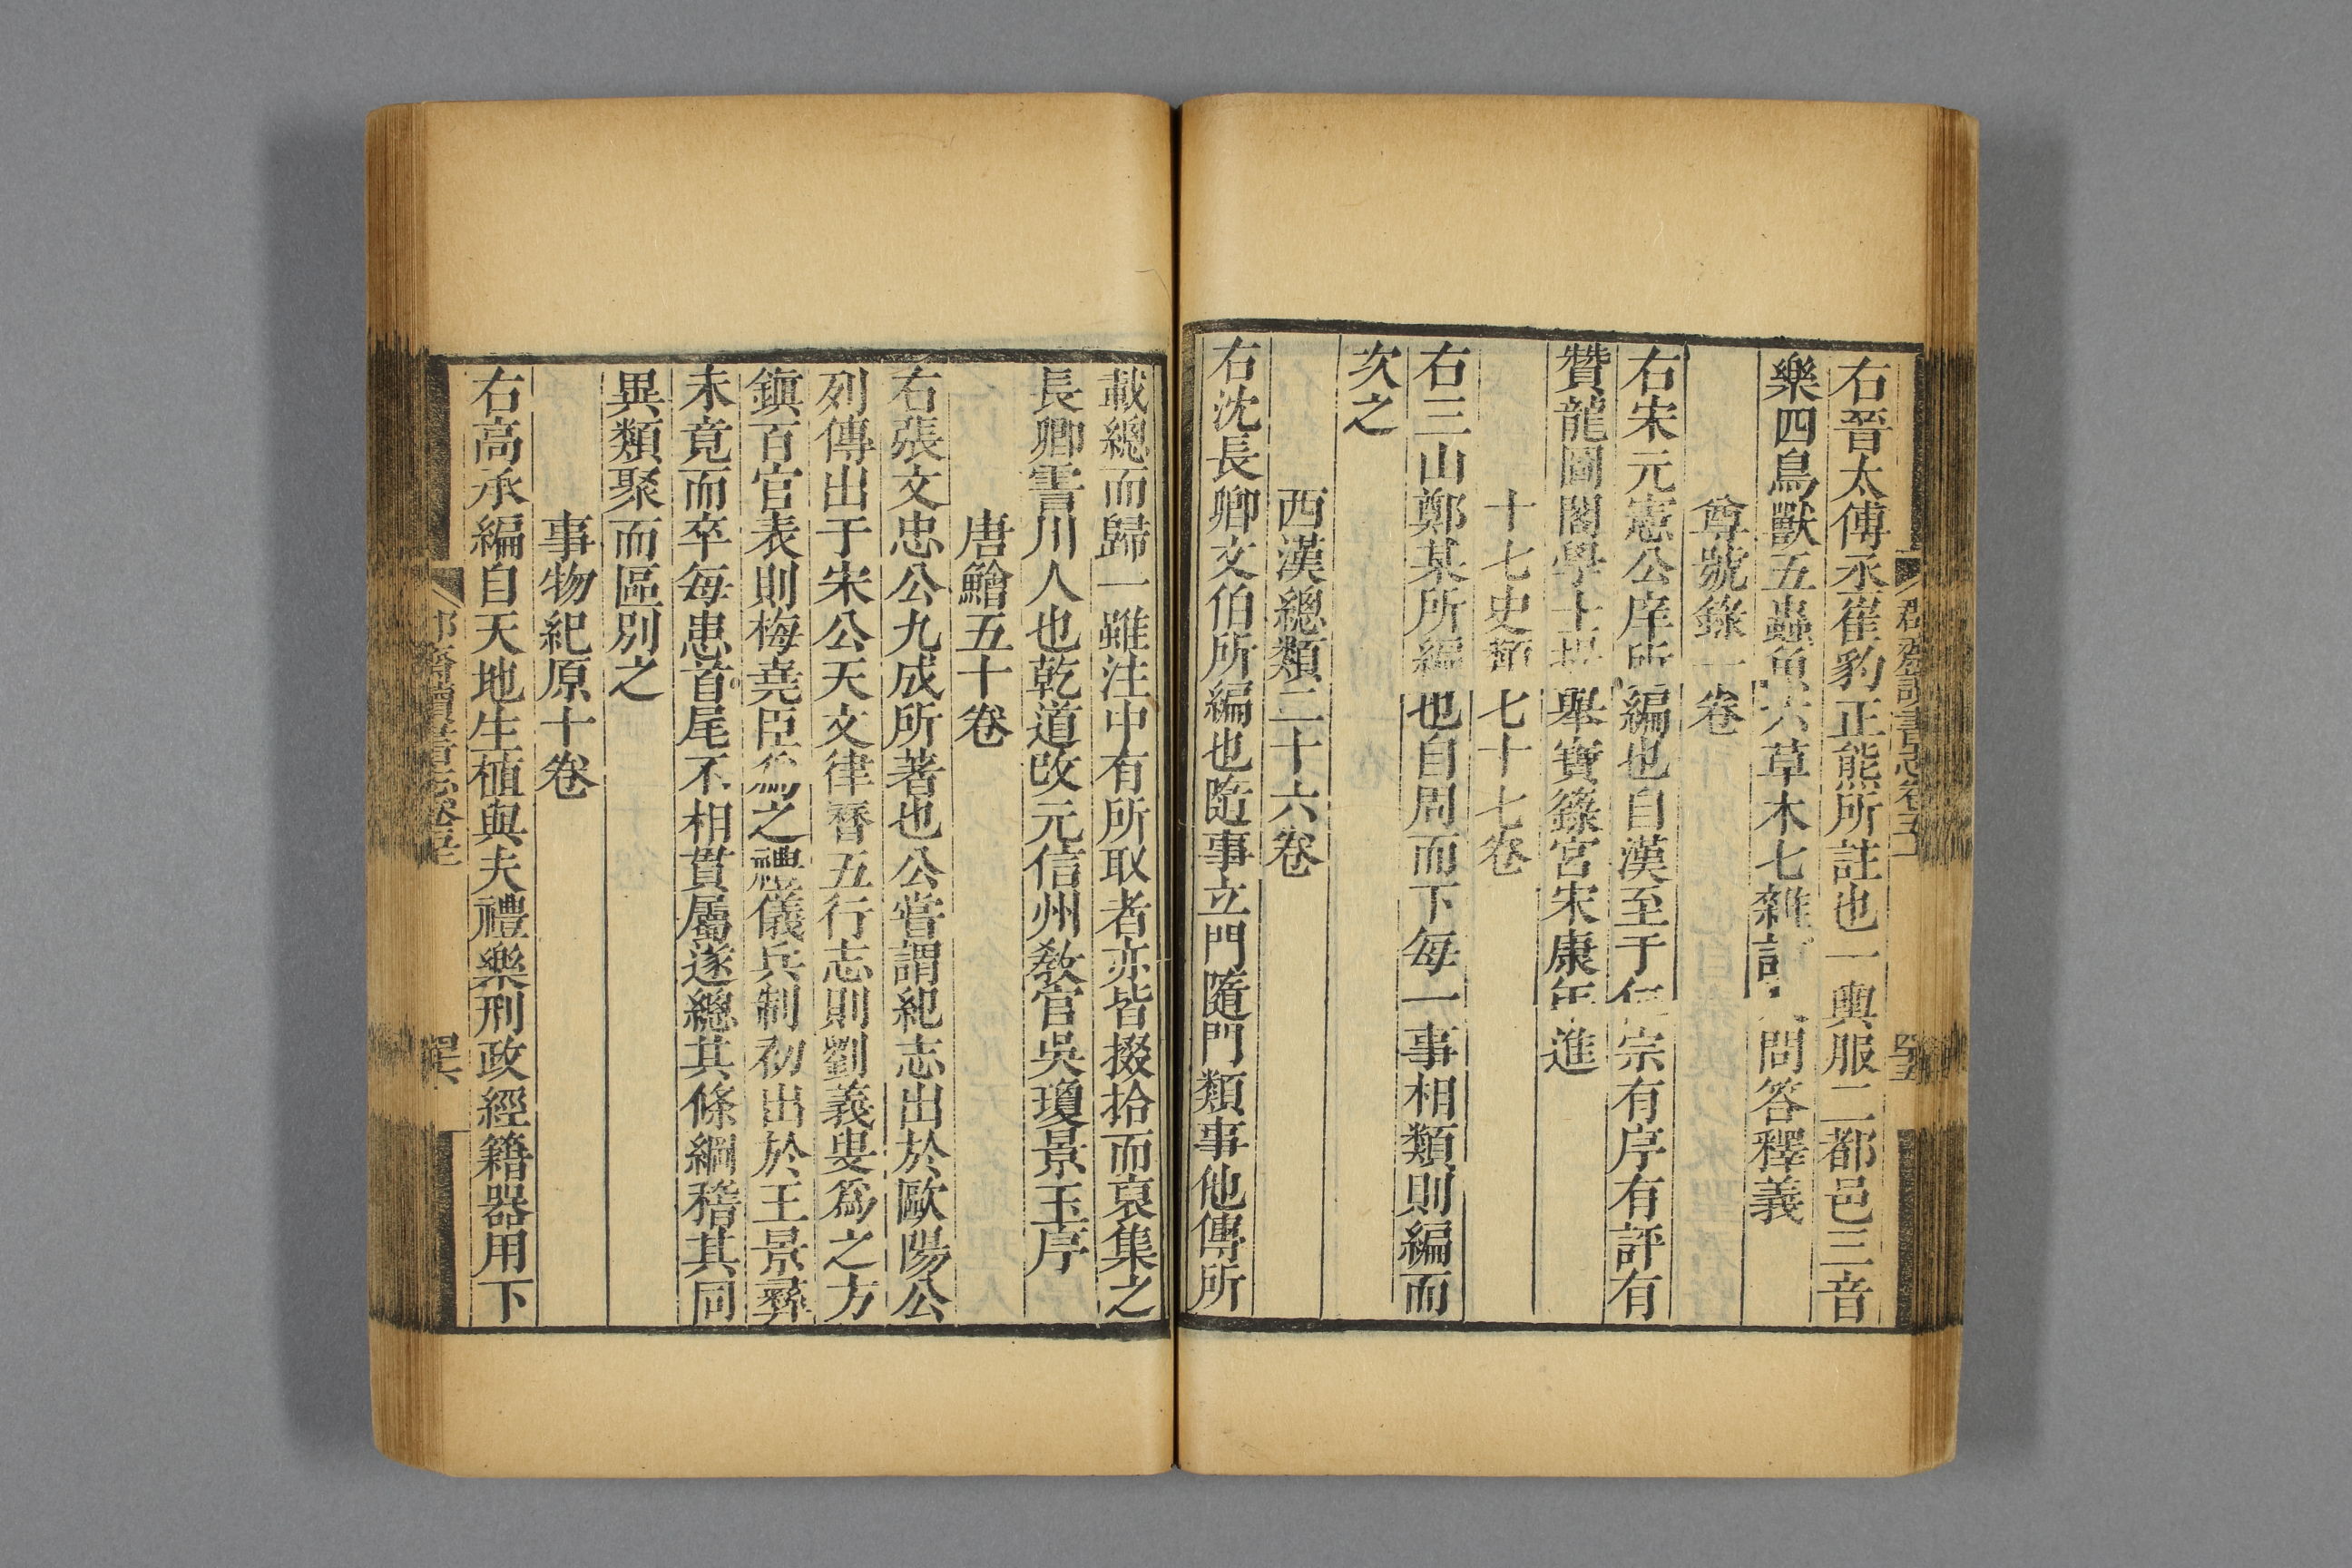 右晉太傅丞崔豹正熊所註也一輿服二都邑三音
樂四鳥獸五蟲魚六草木七雜記問答釋義
尊號錄一卷
右宋元憲公庠所編也自漢至于仁宗有序有評有
贊龍圖閣學士提舉寶籙宮宋康年進
十七史類七十七卷
右三山鄭某所編也自周而下每一事相類則編而
次之
西漢總類二十六卷
右沈長卿文伯所編也隨事立門隨門類事他傳所
載總而歸一雖注中有所取者亦皆掇拾而裒集之
長卿霅川人也乾道改元信州敎官吳瓊景玉序
唐鱠五十卷
右張文忠公九成所著也公嘗謂紀志出於歐陽公
列傳出于宋公天文律曆五行志則劉義叟爲之方
鎭百官表則梅堯臣爲之禮儀兵制初出於王景彝
未竟而卒每患首尾不相貫屬遂總其條綱稽其同
異類聚而區別之
事物紀原十卷
右高承編自天地生植與夫禮樂刑政經籍器用下